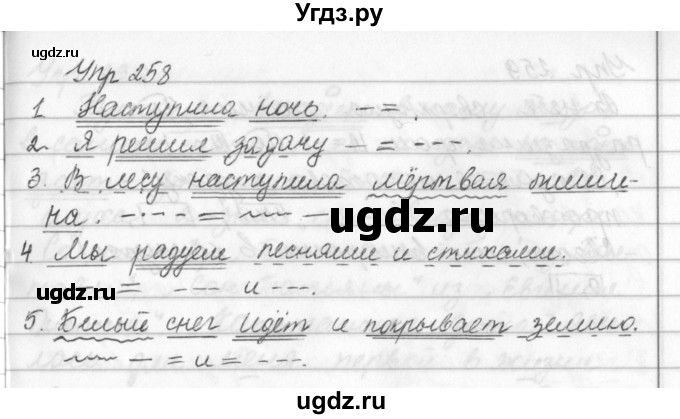 Угдз.ру
gdz.ru
gdz.ru
gdz.ru
Упр 258
1. Наступила ночь. – = .
2. Я решил задачу – = - - -.
3. В лесу наступила мёртвая тиши-
на. –·–·– = ~~~ –
4 Мы радуем песнями и стихами.
– = - - - и - - -.
5. Белый снег идёт и покрывает землю.
~~~ – = и = - - -.
gdz.ru
gdz.ru
gdz.ru
gdz.ru
gdz.ru
uгдz.ru